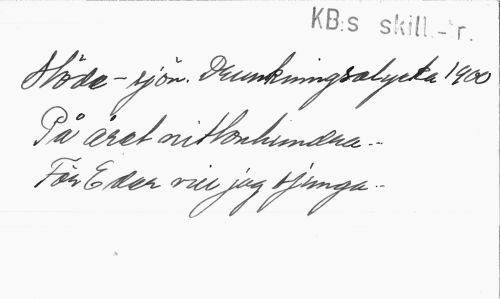 KB:s skill.-tr.
Stöde-sjön. Drunkningsolycka 1900
På året nittonhundra..
För Eder vill jag sjunga..